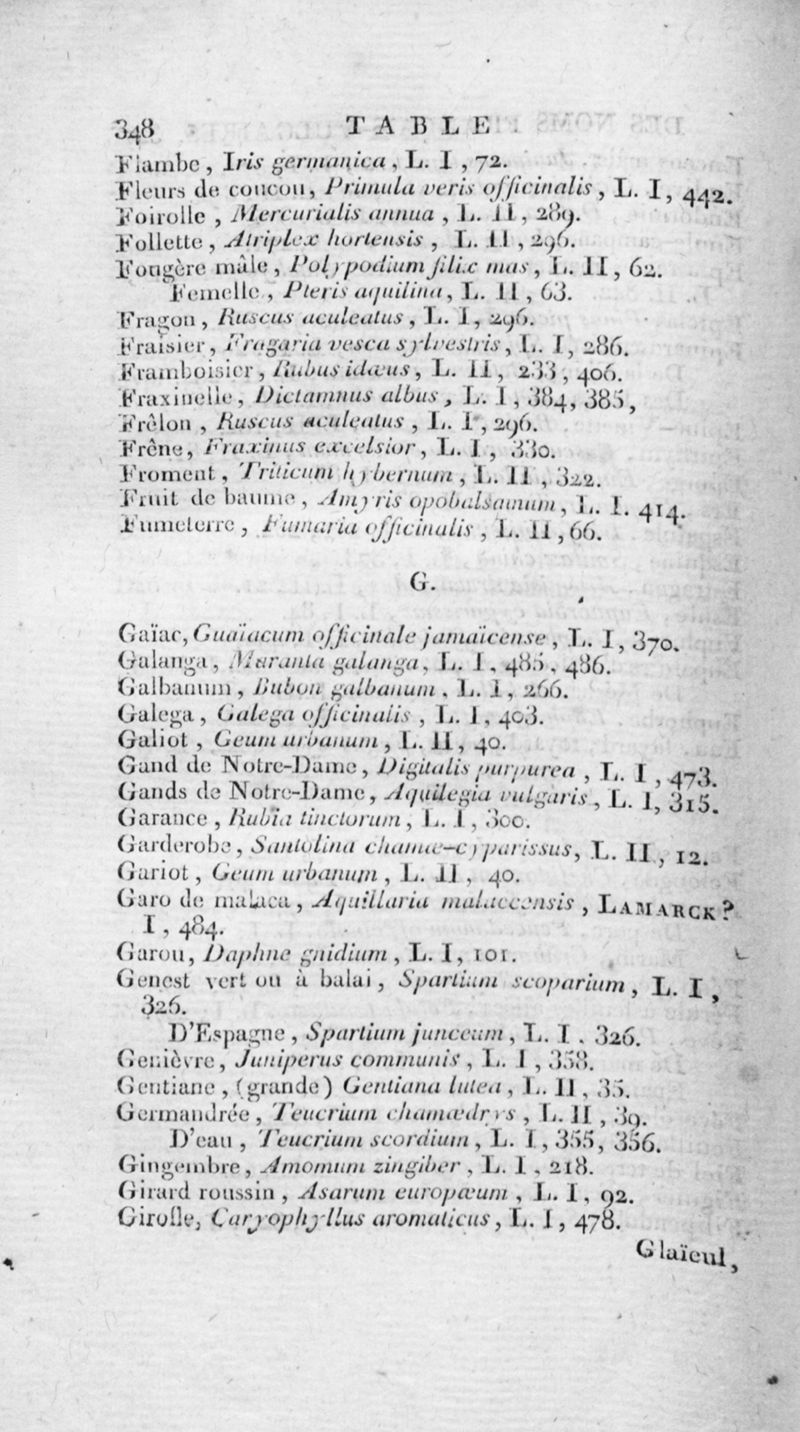 348 TABLE
Flambe, Iris germanica, L. I, 72.
Fleurs de coucou, Primula veris officinalis, L. I, 442.
Foirolle, Mercurialis annua, L. II, 289.
Follette, Atriplex hortensis, L. II, 296.
Fougère mâle, Polypodium filix mas, L. II, 62.
Femelle, Pteris aquilina, L. II, 63.
Fragon, Ruscus aculeatus, L. I, 296.
Fraisier, Fragaria vesca sylvestris, L. I, 286.
Framboisier, Rubus idæus, L. II, 233, 406.
Fraxinelle, Dictamnus albus, L. I, 384, 385,
Frêlon, Ruscus aculeatus, L. I, 296.
Frêne, Fraxinus excelsior, L. I, 330.
Froment, Triticum hybernum, L. II, 322.
Fruit de baume, Amyris opobalsamum, L. I. 414.
Fumeterre, Fumaria officinalis, L. II, 66.
G.
Gaïac, Guaïacum officinale jamaïcense, L. I, 370.
Galanga, Maranta galanga, L. I, 485, 486.
Galbanum, Bubon galbanum, L. I, 266.
Galega, Galega officinalis, L. I, 403.
Galiot, Geum urbanum, L. II, 40.
Gand de Notre-Dame, Digitalis purpurea, L. I, 473.
Gands de Notre-Dame, Aquilegia vulgaris, L. I, 315.
Garance, Rubia tinctorum, L. I, 300.
Garderobe, Santolina chamæ-cyparissus, L. II, 12.
Gariot, Geum urbanum, L. II, 40.
Garo de malaca, Aquillaria malaccensis, LAMARCK?
I, 484.
Garou, Daphne gnidium, L. I, 101.
Genest vert ou à balai, Spartium scoparium, L. I,
326.
D'Espagne, Spartium junceum, L. I. 326.
Genièvre, Juniperus communis, L. I, 358.
Gentiane, (grande) Gentiana lutea, L. II, 35.
Germandrée, Teucrium chamædrys, L. II, 39.
D'eau, Teucrium scordium, L. I, 355, 356.
Gingembre, Amomum zingiber, L. I, 218.
Girard roussin, Asarum europæum, L. I, 92.
Girofle, Caryophyllus aromaticus, L. I, 478.
Glaïeul,